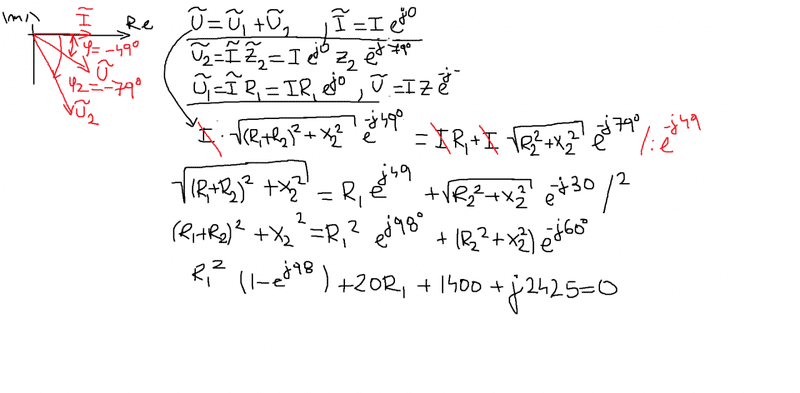 Im Ĩ Re
φ=-49°
Ũ
φ2=-79°
Ũ2
Ũ=Ũ1+Ũ2 , Ĩ=I e^j0
Ũ2=Ĩ Z̃2=I e^j0 Z2 e^-j79°
Ũ1=Ĩ R1=IR1 e^j0 , Ũ=I Z e^-j
I·√((R1+R2)²+X2²) e^-j49° = I R1+I √(R2²+X2²) e^-j79° /:e^-j49
√((R1+R2)²+X2²) = R1 e^j49 + √(R2²+X2²) e^-j30 /²
(R1+R2)²+X2²=R1² e^j98° + (R2²+X2²) e^-j60°
R1² (1-e^j98) +20R1 + 1400 + j2425=0